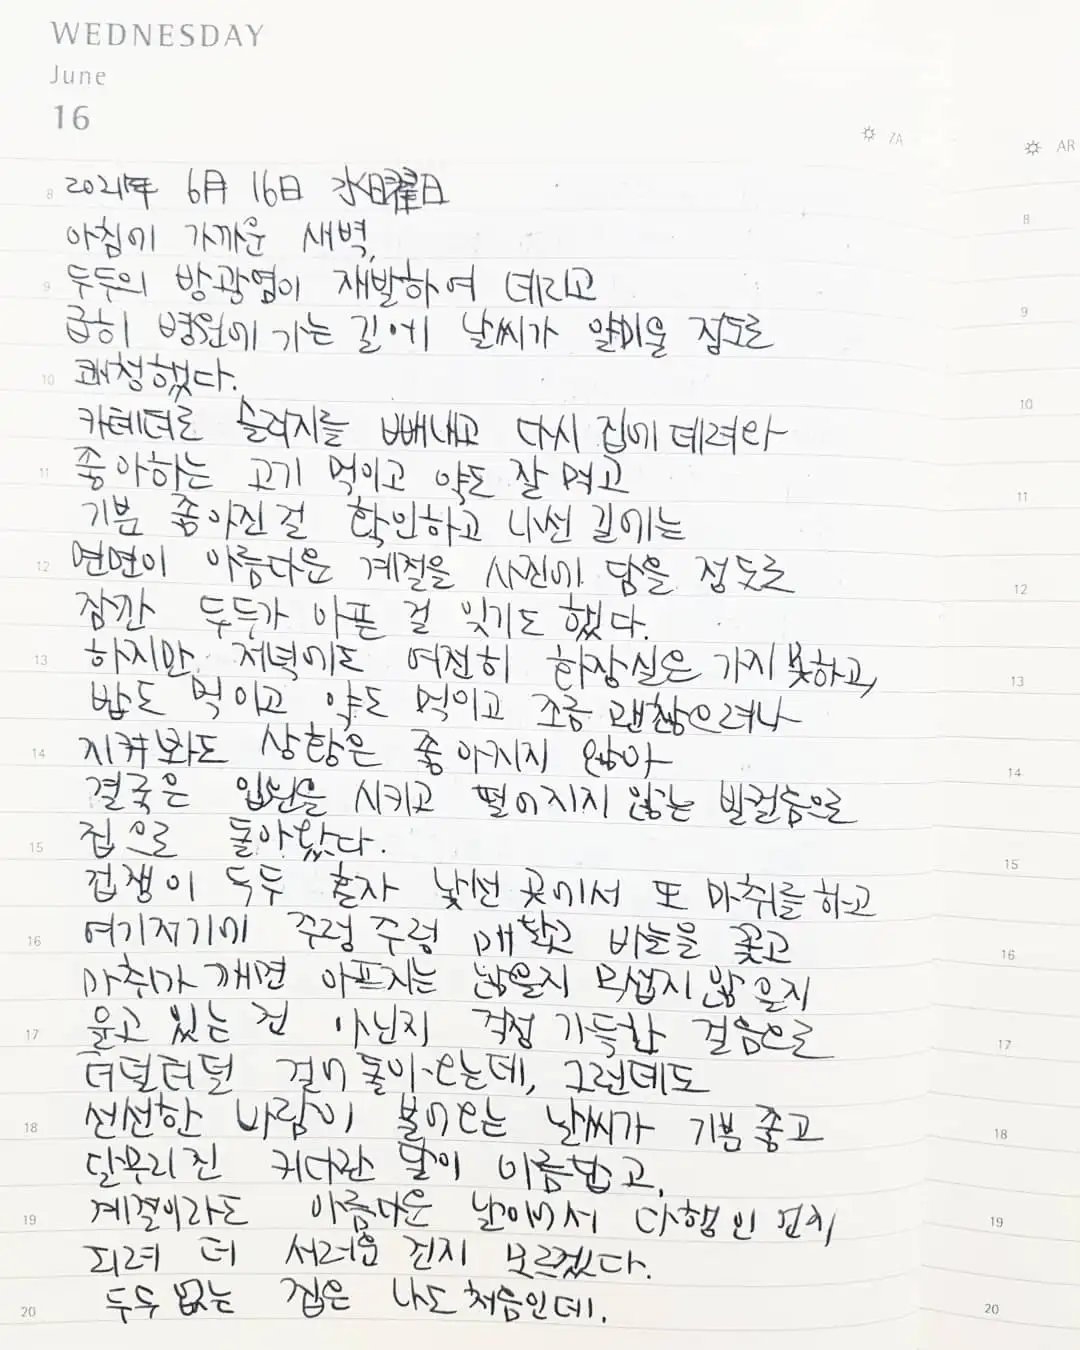 WEDNESDAY
June
16
ZA
AR
2021年 6月 16日 水曜日
아침이 가까운 새벽,
두두의 방광염이 재발하여 데리고
급히 병원에 가는 길에 날씨가 얄미울 정도로
쾌청했다.
카테터로 슬러지를 빼내고 다시 집에 데려와
좋아하는 고기 먹이고 약도 잘 먹고
기분 좋아진 걸 확인하고 나선 길에는
연연이 아름다운 계절을 사진에 담을 정도로
잠깐 두두가 아픈 걸 잊기도 했다.
하지만 저녁에도 여전히 화장실은 가지 못하고,
밥도 먹이고 약도 먹이고 조금 괜찮으려나
지켜봐도 상황은 좋아지지 않아
결국은 입원을 시키고 떨어지지 않는 발걸음으로
집으로 돌아왔다.
겁쟁이 두두 혼자 낯선 곳에서 또 마취를 하고
여기저기에 주렁주렁 매달고 바늘을 꽂고
마취가 깨면 아프지는 않을지 무섭지 않을지
울고 있는 건 아닌지 걱정 가득한 걸음으로
터덜터덜 걸어 돌아오는데, 그런데도
선선한 바람이 불어오는 날씨가 기분 좋고
달무리진 커다란 달이 아름답고,
계절이라도 아름다운 날이어서 다행인 건지
되려 더 서러운 건지 모르겠다.
두두 없는 집은 나도 처음인데.
8
9
10
11
12
13
14
15
16
17
18
19
20
8
9
10
11
12
13
14
15
16
17
18
19
20